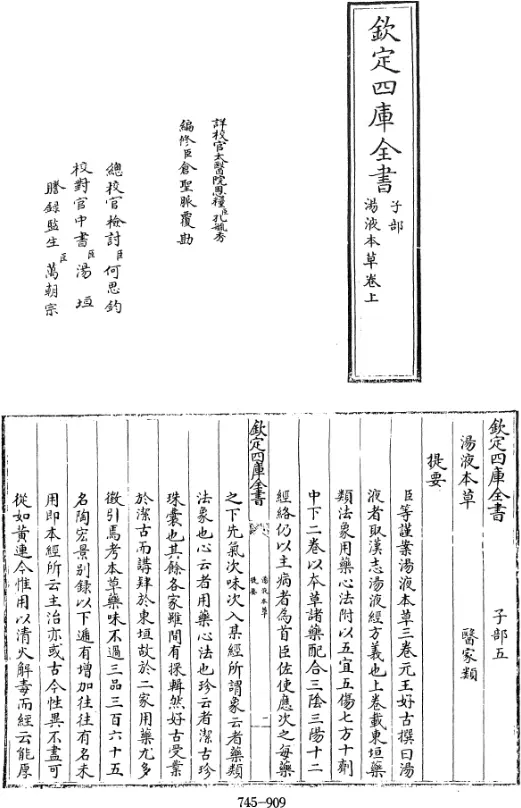 欽定四庫全書
子部
湯液本草卷上
詳校官太醫院恩糧臣孔毓秀
編修臣倉聖脈覆勘
總校官檢討臣何思鈞
校對官中書臣湯垣
謄錄監生臣萬朝宗
欽定四庫全書
子部五
湯液本草
醫家類
提要
臣等謹案湯液本草三卷元王好古撰曰湯
液者取漢志湯液經方義也上卷載東垣藥
類法象用藥心法附以五宜五傷七方十劑
中下二卷以本草諸藥配合三陰三陽十二
經絡仍以主病者為首臣佐使應次之每藥
欽定四庫全書
湯液本草
提要
一
之下先氣次味次入某經所謂象云者藥類
法象也心云者用藥心法也珍云者潔古珍
珠囊也其餘各家雖間有採輯然好古受業
於潔古而講肄於東垣故於二家用藥尤多
徵引焉考本草藥味不過三品三百六十五
名陶宏景别錄以下遞有增加往往有名未
用即本經所云主治亦或古今性異不盡可
從如黃連今惟用以清火解毒而經云能厚
745-909